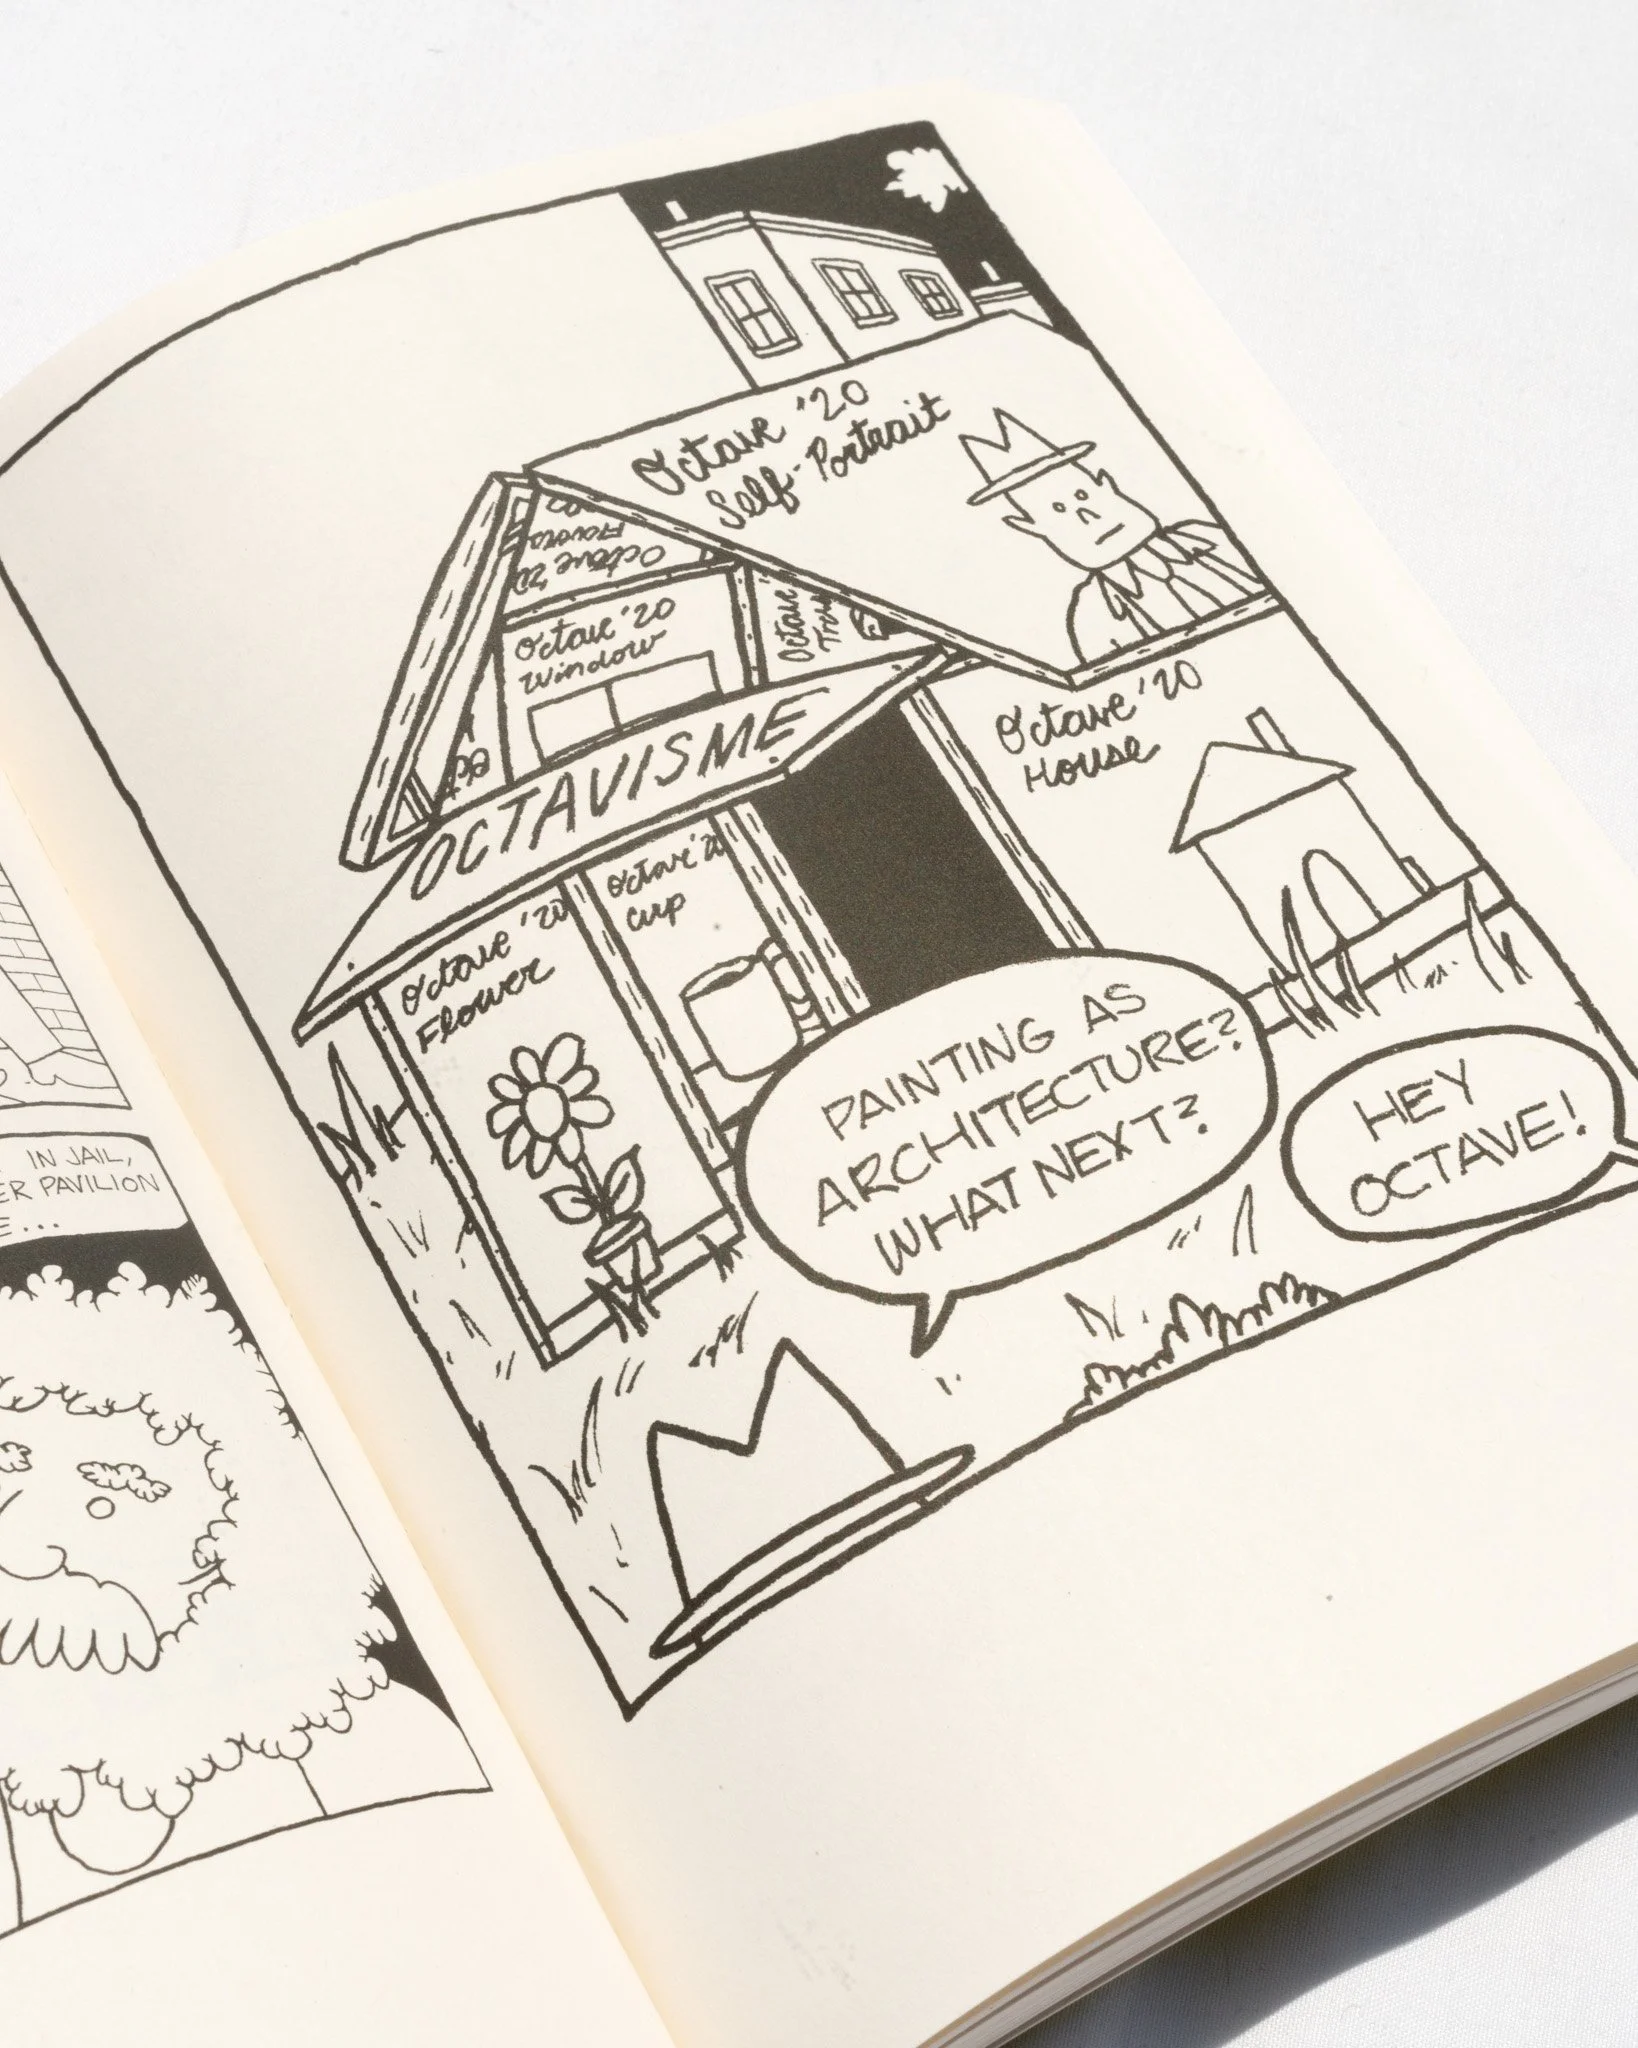 IN JAIL,
PAVILION
Octave '20
Self-Portrait
Octave '20
Octave '20
Window
Octave
OCTAVISME
Octave '20
House
Octave '20
Cup
Octave '20
Flower
PAINTING AS
ARCHITECTURE?
WHAT NEXT?
HEY
OCTAVE!